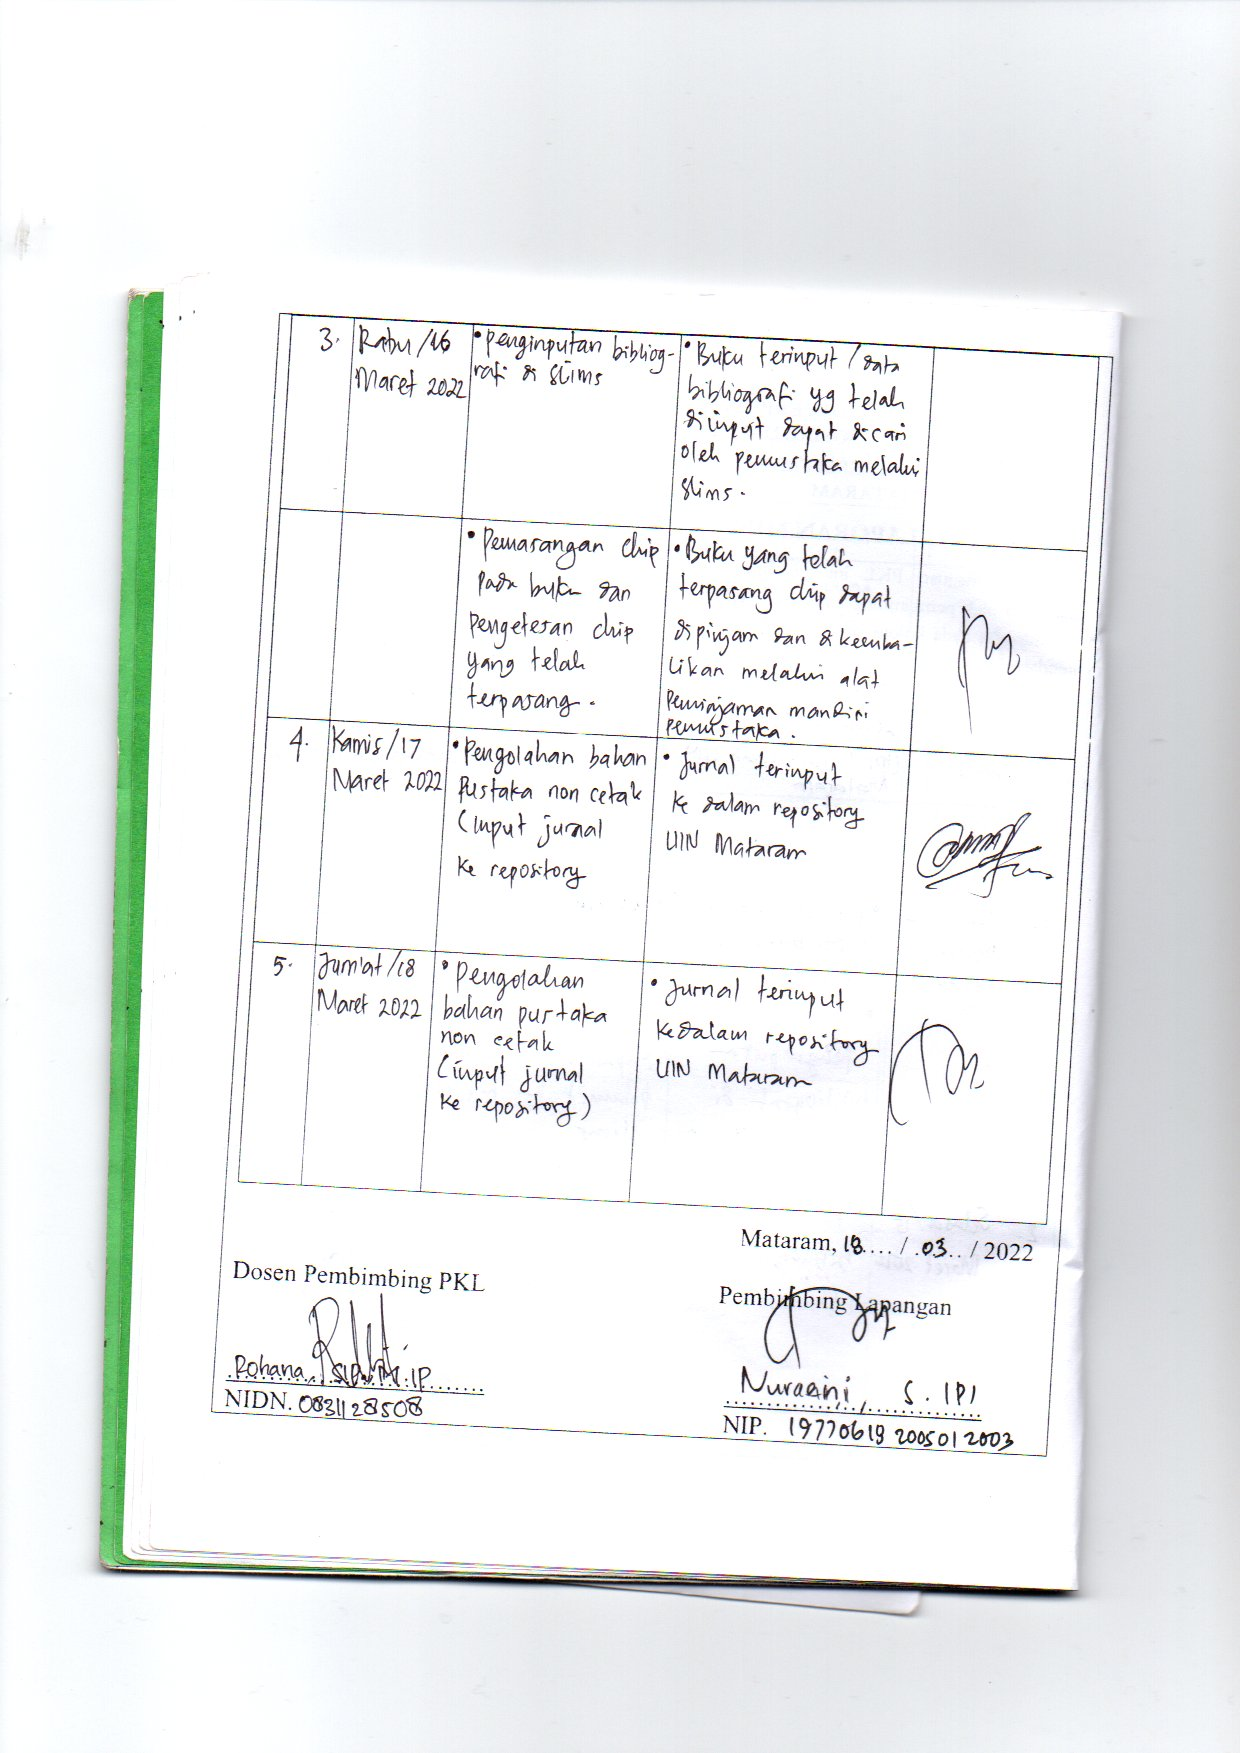 3. Rabu/16 Maret 2022
• Penginputan bibliog-
rafi di Slims
• Buku terinput / data
bibliografi yg telah
diinput dapat dicari
oleh pemustaka melalui
Slims.
• Pemasangan chip
pada buku dan
pengetesan chip
yang telah
terpasang.
• Buku yang telah
terpasang chip dapat
dipinjam dan dikemba-
likan melalui alat
Peminjaman mandiri
pemustaka.
4. Kamis/17
Maret 2022
• Pengolahan bahan
Pustaka non cetak
(input jurnal
ke repository
• Jurnal terinput
ke dalam repository
UIN Mataram
5. Jum'at/18
Maret 2022
• Pengolahan
bahan pustaka
non cetak
(input jurnal
ke repository)
• Jurnal terinput
kedalam repository
UIN Mataram
Mataram, 18.... / .03.. / 2022
Dosen Pembimbing PKL
Pembimbing Lapangan
Rohana, S.IP.
NIDN. 0831128508
Nuraeini, S.IPI
NIP. 19770619 200501 2003